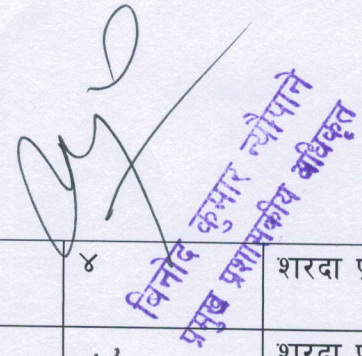 बिनोद कुमार न्यौपाने
प्रमुख प्रशासकीय अधिकृत
४ शरदा
शरदा